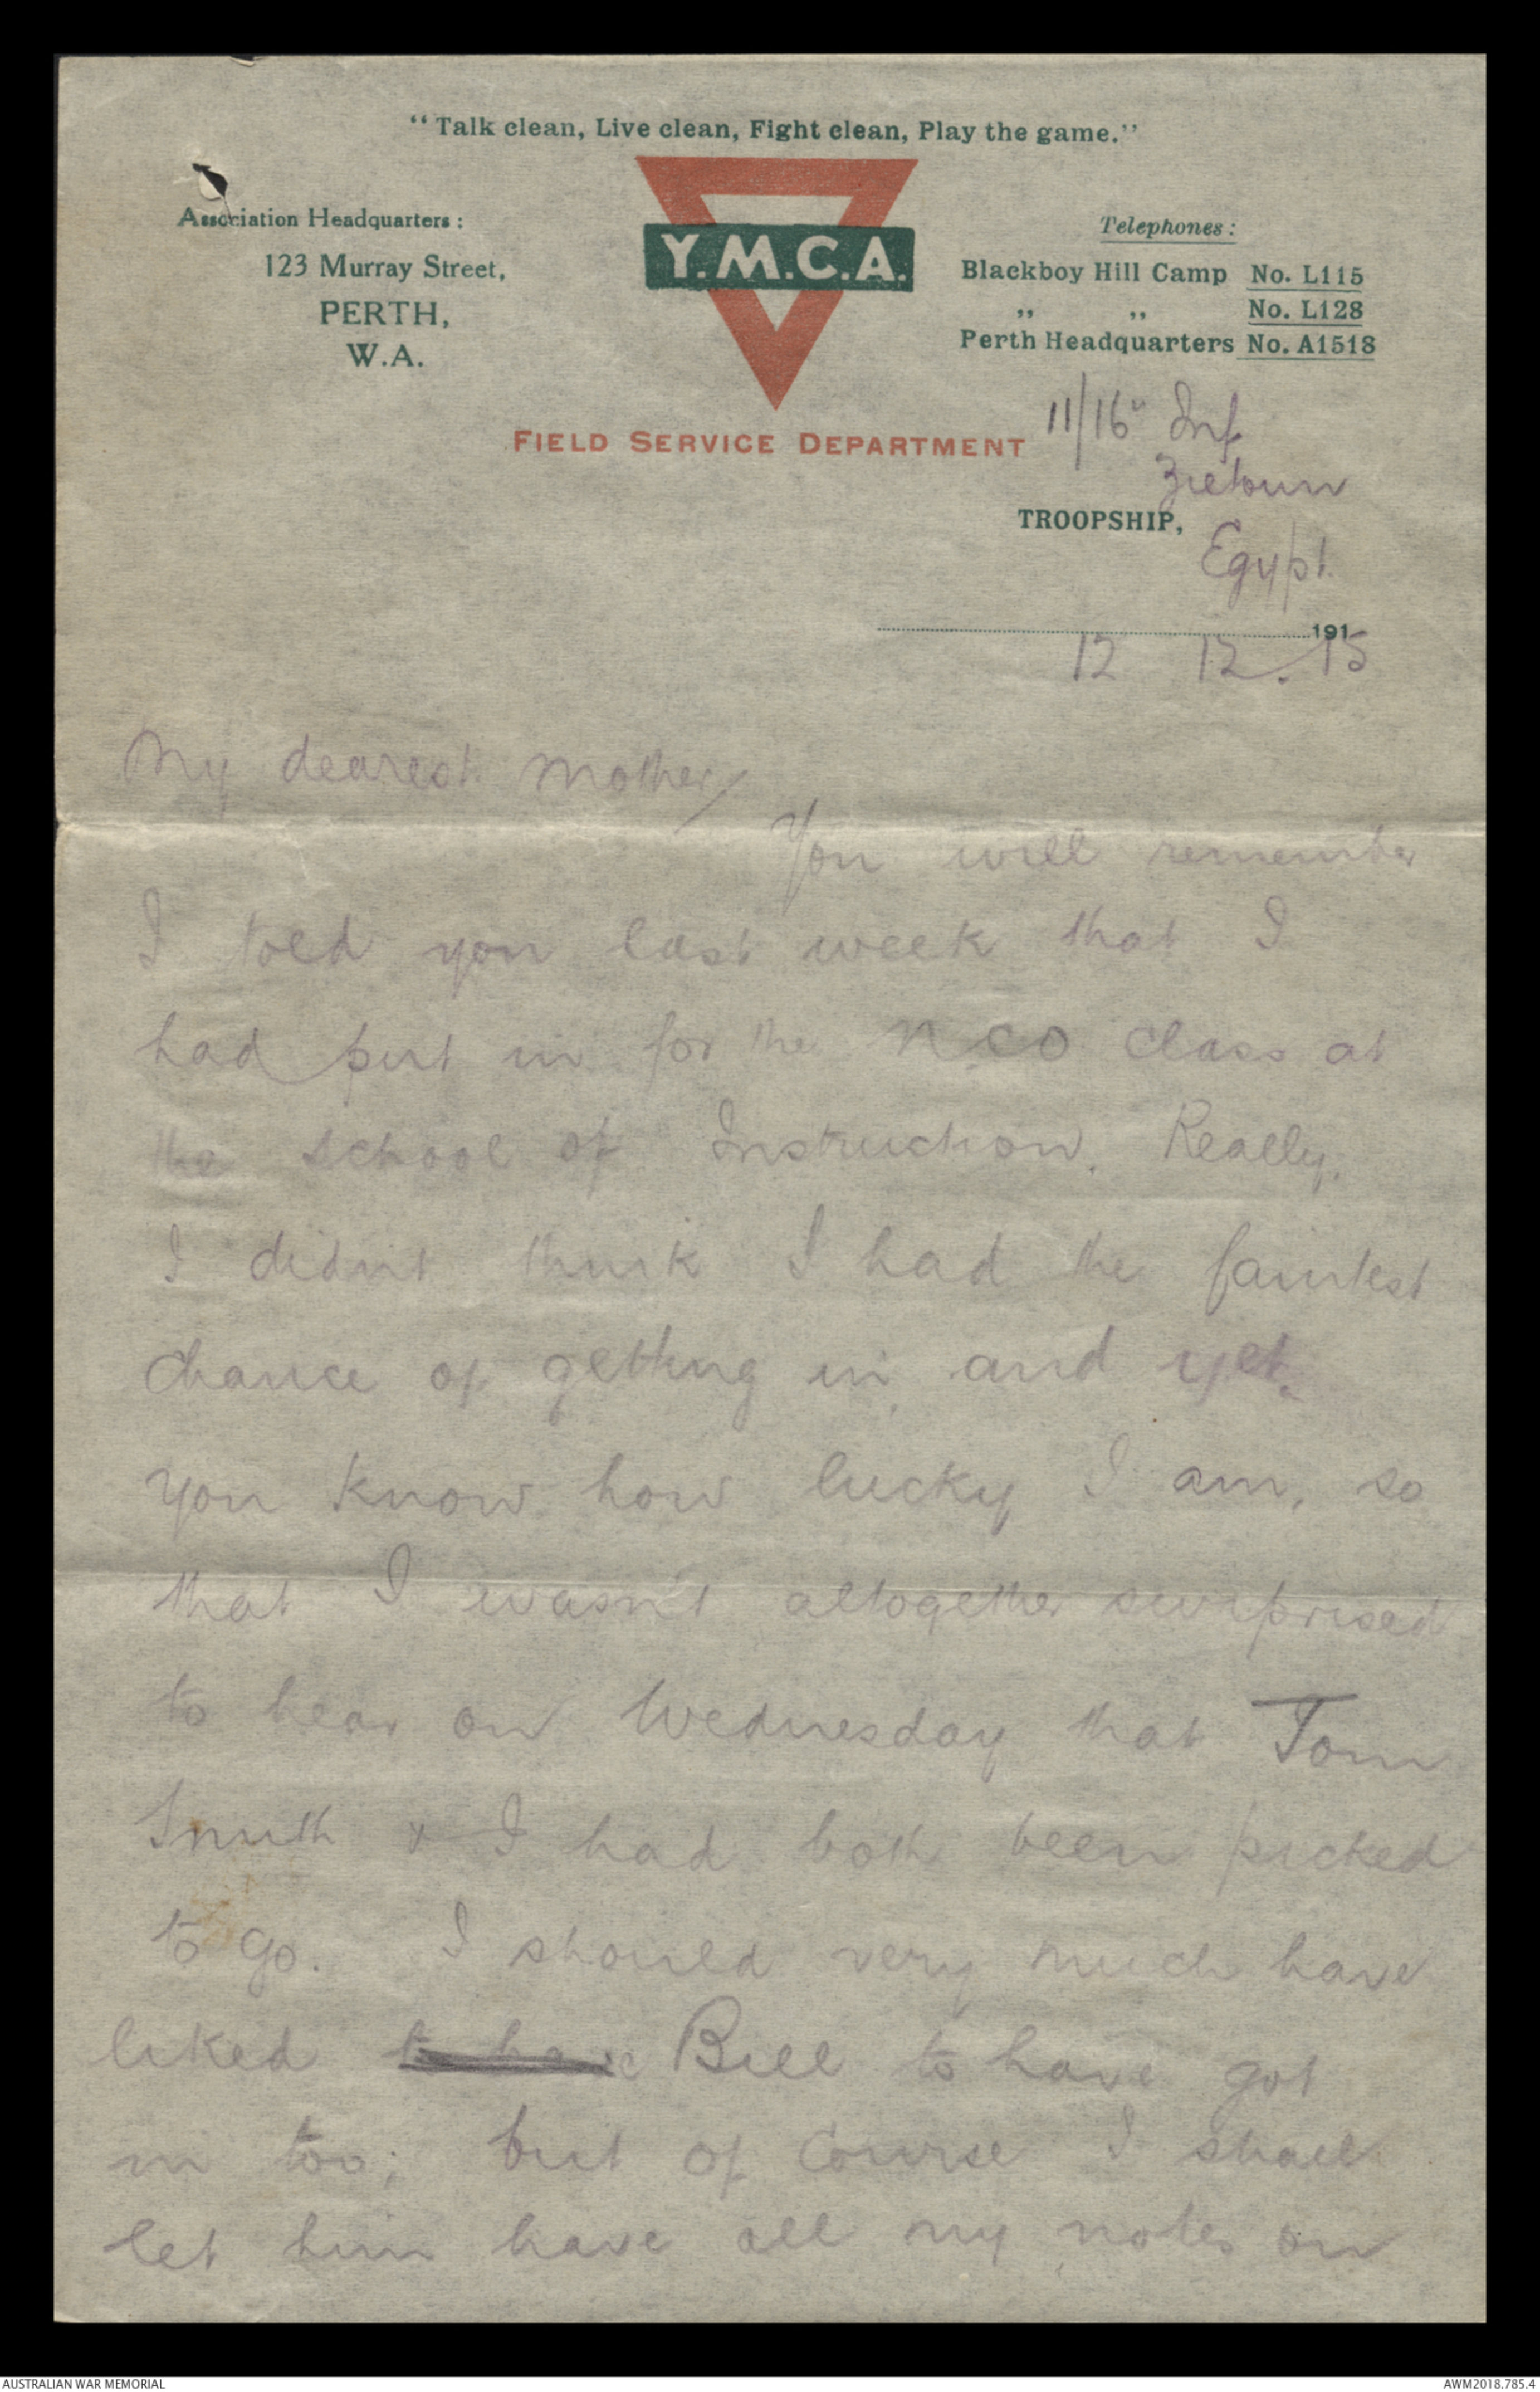 "Talk clean, Live clean, Fight clean, Play the game."
Association Headquarters:
123 Murray Street,
PERTH,
W.A.
Y.M.C.A.
Telephones:
Blackboy Hill Camp No. L115
,, ,, No. L128
Perth Headquarters No. A1518
FIELD SERVICE DEPARTMENT
11/16th Inf
Zietoun
TROOPSHIP,
Egypt.
191
12 12. 15
My dearest Mother/
You will remember
I told you last week that I
had put in for the NCO class at
the school of Instruction. Really,
I didn't think I had the faintest
chance of getting in, and yet,
you know how lucky I am, so
that I wasn't altogether surprised
to hear on Wednesday that Tom
Smith & I had both been picked
to go. I should very much have
liked to have Bill to have got
in too; but of course I shall
let him have all my notes on
AUSTRALIAN WAR MEMORIAL
AWM2018.785.4